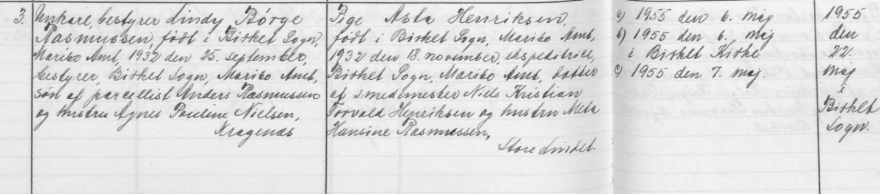 3.
Unkarl, bestyrer Lindy Börge
Rasmussen, født i Birket Sogn,
Maribo Amt, 1932 den 25. september,
bestyrer, Birket Sogn, Maribo Amt,
søn af parcellist Anders Rasmussen
og hustru Agnes Pauline Nielsen,
Kragenæs
Pige Asta Henriksen,
født i Birket Sogn, Maribo Amt,
1932 18. november, ekspeditrice,
Birket Sogn, Maribo Amt, datter
af smedmester Niels Kristian
Torvald Henriksen og hustru Meta
Hansine Rasmussen,
Store Lindet
a) 1955 den 6. maj
b) 1955 den 6. maj
i Birket Kirke
c) 1955 den 7. maj.
1955
den
22.
maj
i
Birket
Sogn.